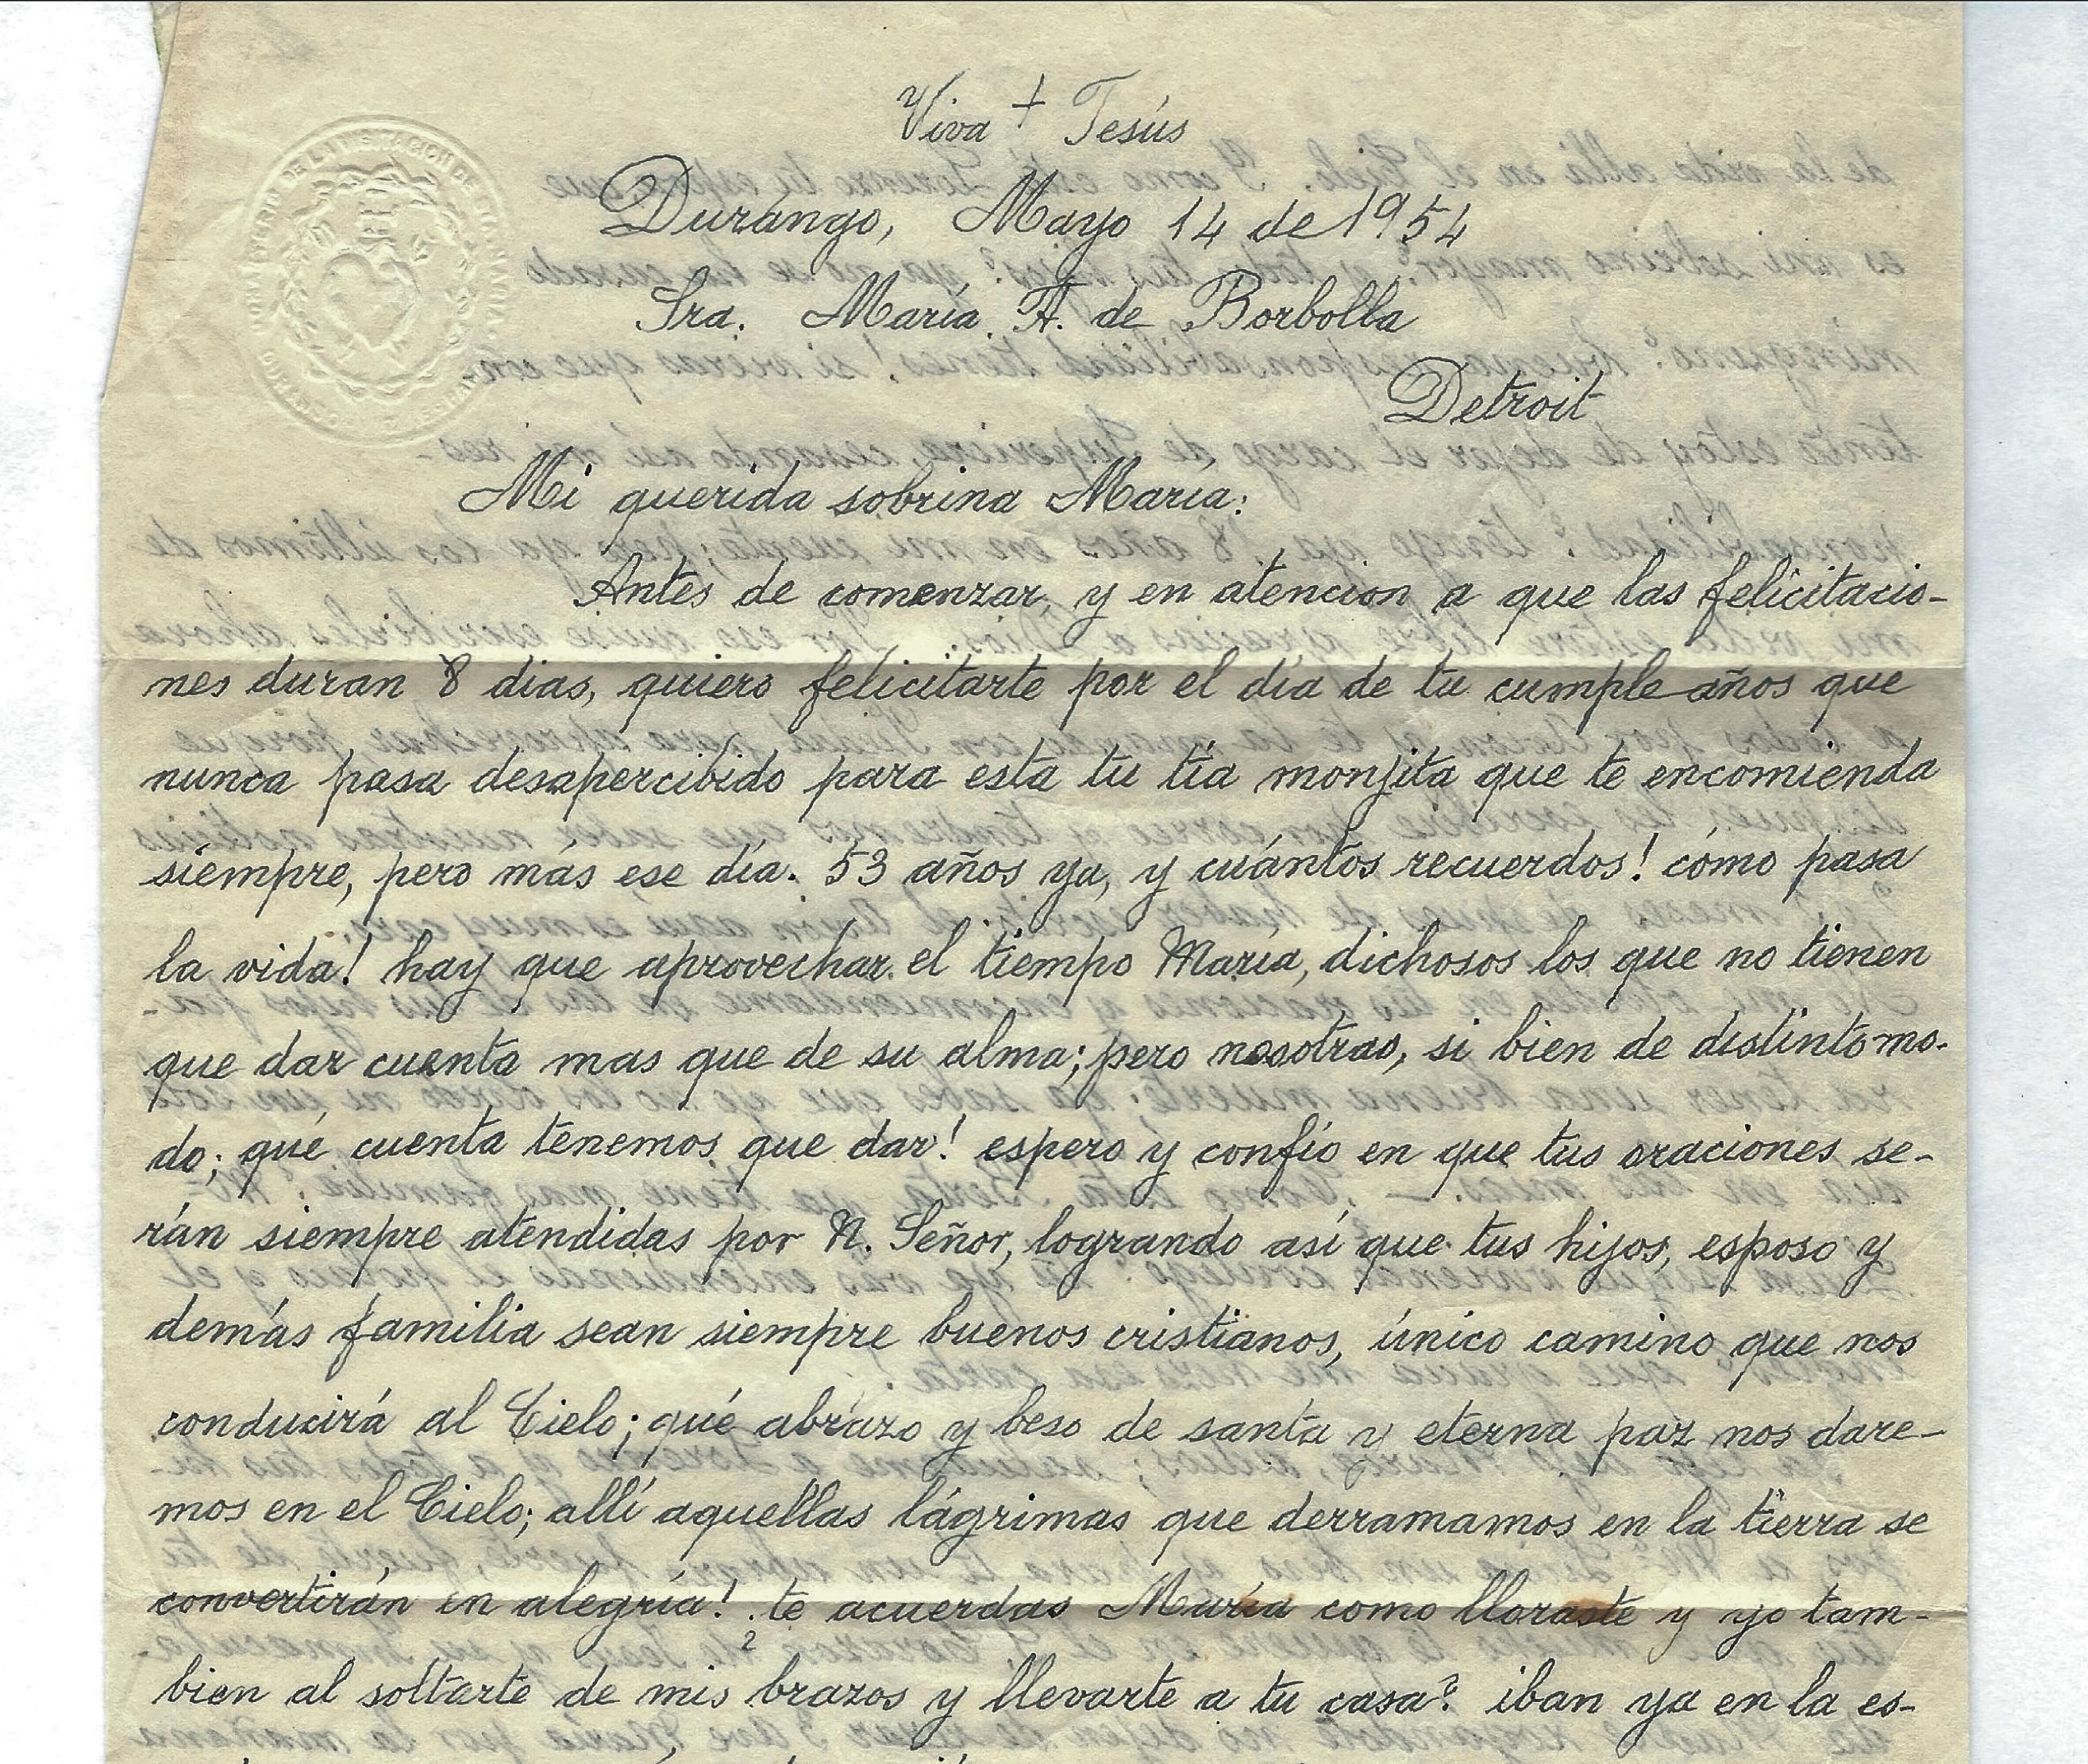 Viva + Jesús
Durango, Mayo 14 de 1954
Sra. María A. de Borbolla
Detroit
Mi querida sobrina María:
Antes de comenzar, y en atencion a que las felicitacio-
nes duran 8 dias, quiero felicitarte por el día de tu cumple años que
nunca pasa desapercibido para esta tu tía monjita que te encomienda
siempre, pero más ese día. 53 años ya, y cuántos recuerdos! cómo pasa
la vida! hay que aprovechar el tiempo María, dichosos los que no tienen
que dar cuenta mas que de su alma; pero nosotras, si bien de distinto mo-
do; qué cuenta tenemos que dar! espero y confío en que tus oraciones se-
rán siempre atendidas por N. Señor, logrando así que tus hijos, esposo y
demás familia sean siempre buenos cristianos, único camino que nos
conducirá al Cielo; qué abrazo y beso de santa y eterna paz nos dare-
mos en el Cielo; allí aquellas lágrimas que derramamos en la tierra se
convertirán en alegría! ¿te acuerdas María como lloraste y yo tam-
bien al soltarte de mis brazos y llevarte a tu casa? iban ya en la es-